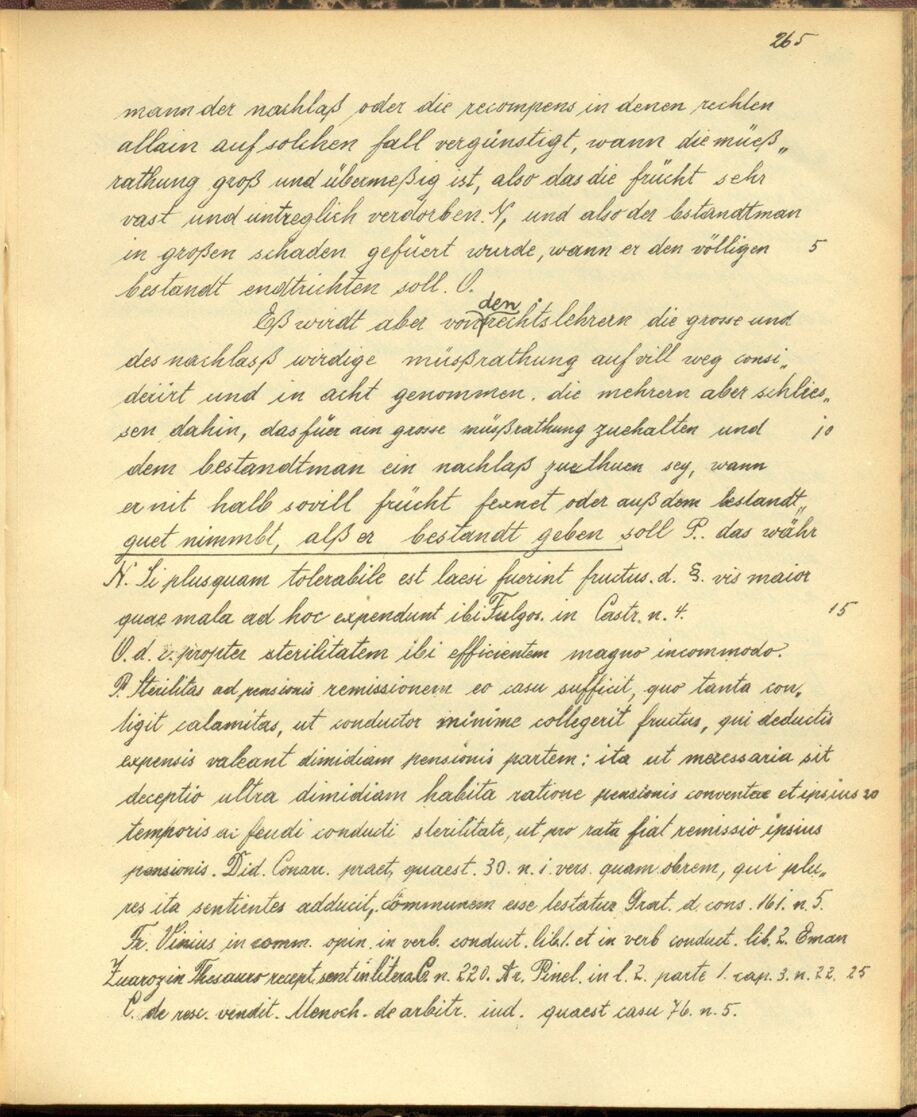 265
mann der nachlaß oder die recompens in denen rechten
allain auf solchen fall vergünstigt, wann die müeß„
rathung groß und übermeßig ist, also das die frücht sehr
vast und untreglich verdorben. N, und also der bstandtman
in großen schaden gefüert wurde, wann er den völligen 5
bestandt endtrichten soll. O.
Eß wirdt aber von den rechtslehrern die grosse und
des nachlasß wirdige müsßrathung auf vill weg consi„
deirt und in acht genommen. die mehrern aber schlies„
sen dahin, das füer ain grosse müsßrathung zuehalten und 10
dem bestandtman ein nachlaß zuethuen sey, wann
er nit halb sovill frücht fexnet oder auß dem bestandt„
guet nimmbt, alß er bestandt geben soll P. das währ
N. Si plusquam tolerabile est laesi fuerint fructus. d. §. vis maior
quae mala ad hoc expendunt ibi Fulgos. in Castr. n. 4. 15
O. d. v. propter sterilitatem ibi efficientem magno incommodo.
P. Sterilitas ad pensionis remissionem eo casu sufficit, quo tanta con„
tigit calamitas, ut conductor minime collegerit fructus, qui deductis
expensis valeant dimidiam pensionis partem: ita ut necessaria sit
deceptio ultra dimidiam habita ratione pensionis conventae et ipsius 20
temporis ac feudi conducti sterilitate, ut pro rata fiat remissio ipsius
pensionis. Did. Conarr. pract, quaest. 30. n. 1. vers. quam obrem, qui plu„
res ita sentientes adducit, Communem esse testatur Grat. d. cons. 161. n. 5.
Fr. Vinius in comm. opin. in verb. conduct. lib. 1. et in verb conduct. lib. 2. Eman
Zuaroz in Thesauro recept. sent in litera C. n. 220. Ar. Pinel. in l. 2. parte 1. cap. 3. n. 22. 25
C. de resc. vendit. Menoch. de arbitr. iud. quaest casu 76. n. 5.